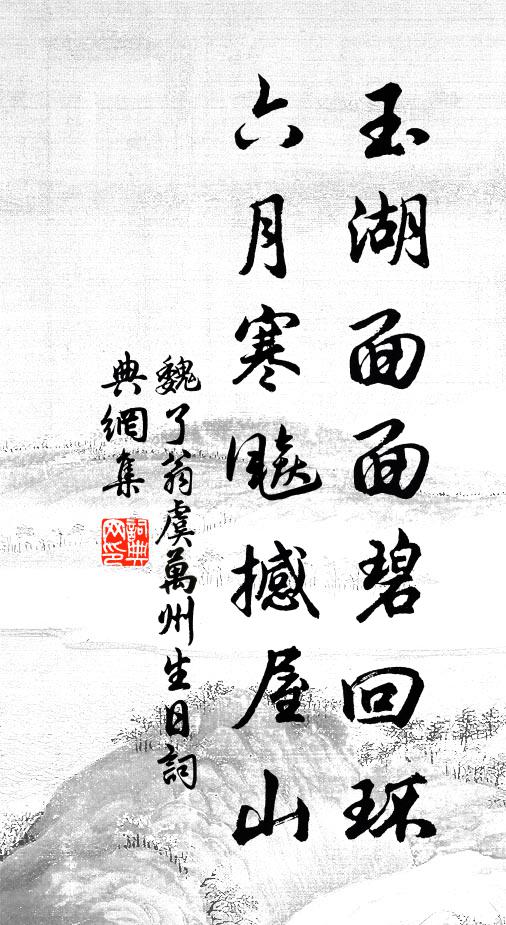 玉湖面面碧回环
六月寒飈撼屋山
魏了翁虞萬州生日詞
典網集
詞典
网印